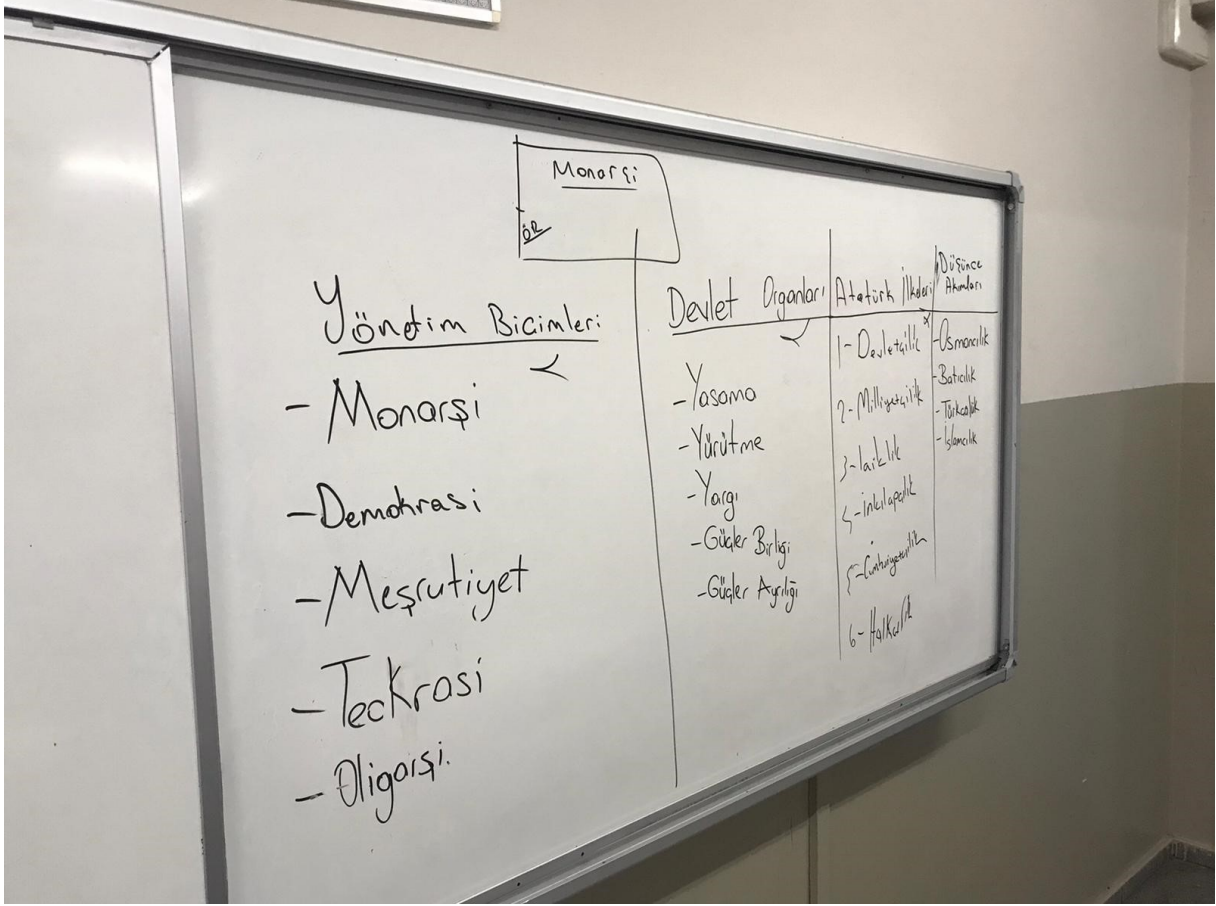 Monarşi
ÖR
Yönetim Biçimleri
- Monarşi
- Demokrasi
- Meşrutiyet
- Teokrasi
- Oligarşi.
Devlet Organları
- Yasama
- Yürütme
- Yargı
- Güçler Birliği
- Güçler Ayrılığı
Atatürk İlkeleri
1- Devletçilik
2- Milliyetçilik
3- laiklik
4- inkılapçılık
5- Cumhuriyetçilik
6- Halkçılık
Düşünce
Akımları
- Osmancılık
- Batıcılık
- Türkçülük
- İslamcılık